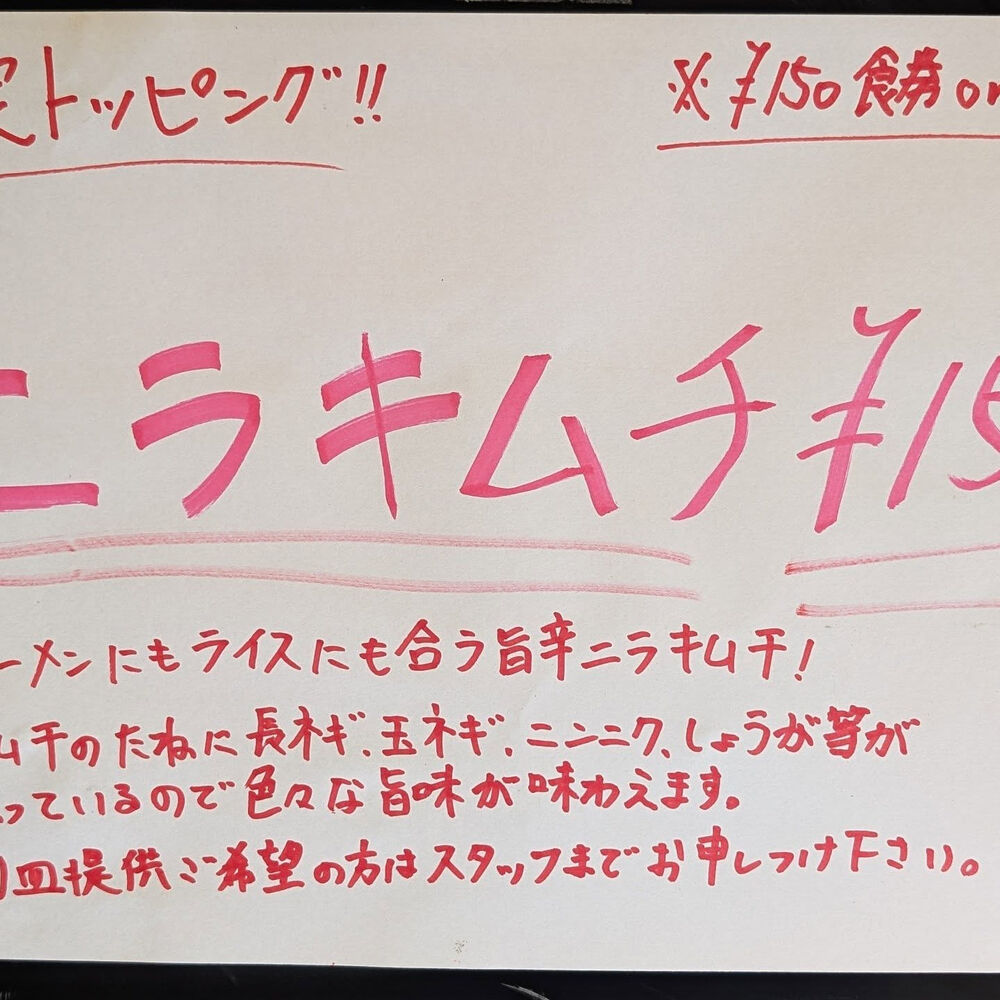 トッピング!!
※¥150食券or
ニラキムチ¥15
ーメンにもライスにも合う旨辛ニラキムチ!
ムチのたねに長ネギ、玉ネギ、ニンニク、しょうが等が
っているので色々な旨味が味わえます。
皿提供ご希望の方はスタッフまでお申しつけ下さい。